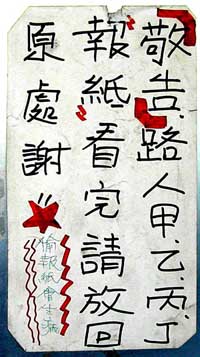 敬告、路人甲、乙、丙、丁
報紙看完請放回
原處謝!!
偷報紙會生